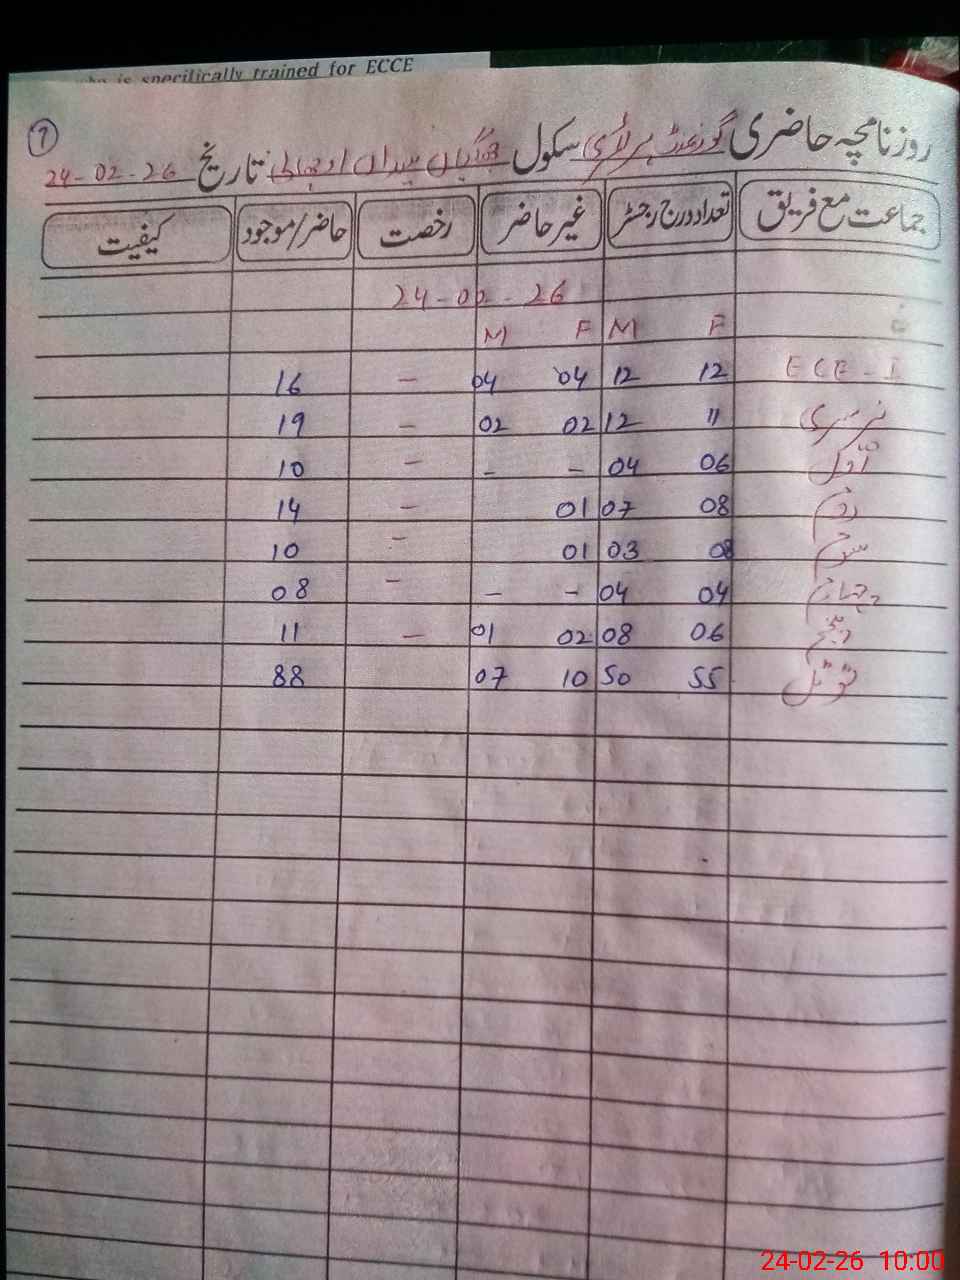 who is specifically trained for ECCE
7
روزنامچہ حاضری گورنمنٹ پرائمری سکول میداں اوچھالی تاریخ 24-02-26
جماعت مع فریق تعداد درج رجسٹر غیر حاضر رخصت حاضر/موجود کیفیت
24-02-26
F M F M
ECE-I 12 12 04 04 – 16
نرسری 11 12 02 02 – 19
اول 06 04 – – – 10
دوم 08 07 01 – 14
سوم 08 03 01 – 10
چہارم 04 04 – – – 08
پنجم 06 08 02 01 – 11
ٹوٹل 55 50 10 07 88
24-02-26 10:00